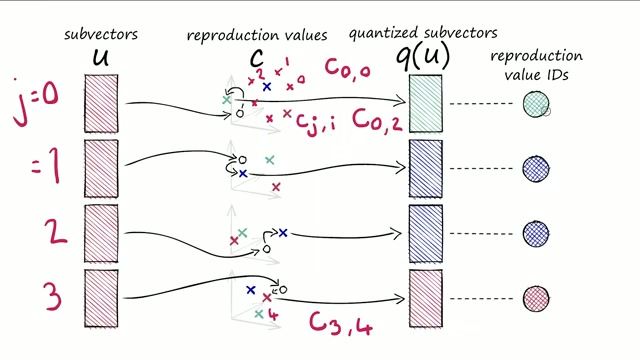 subvectors
u
reproduction values
c
quantized subvectors
q(u)
reproduction
value IDs
j=0
2 1 0
C0,0
Cj,i C0,2
=1
2
3
4
C3,4